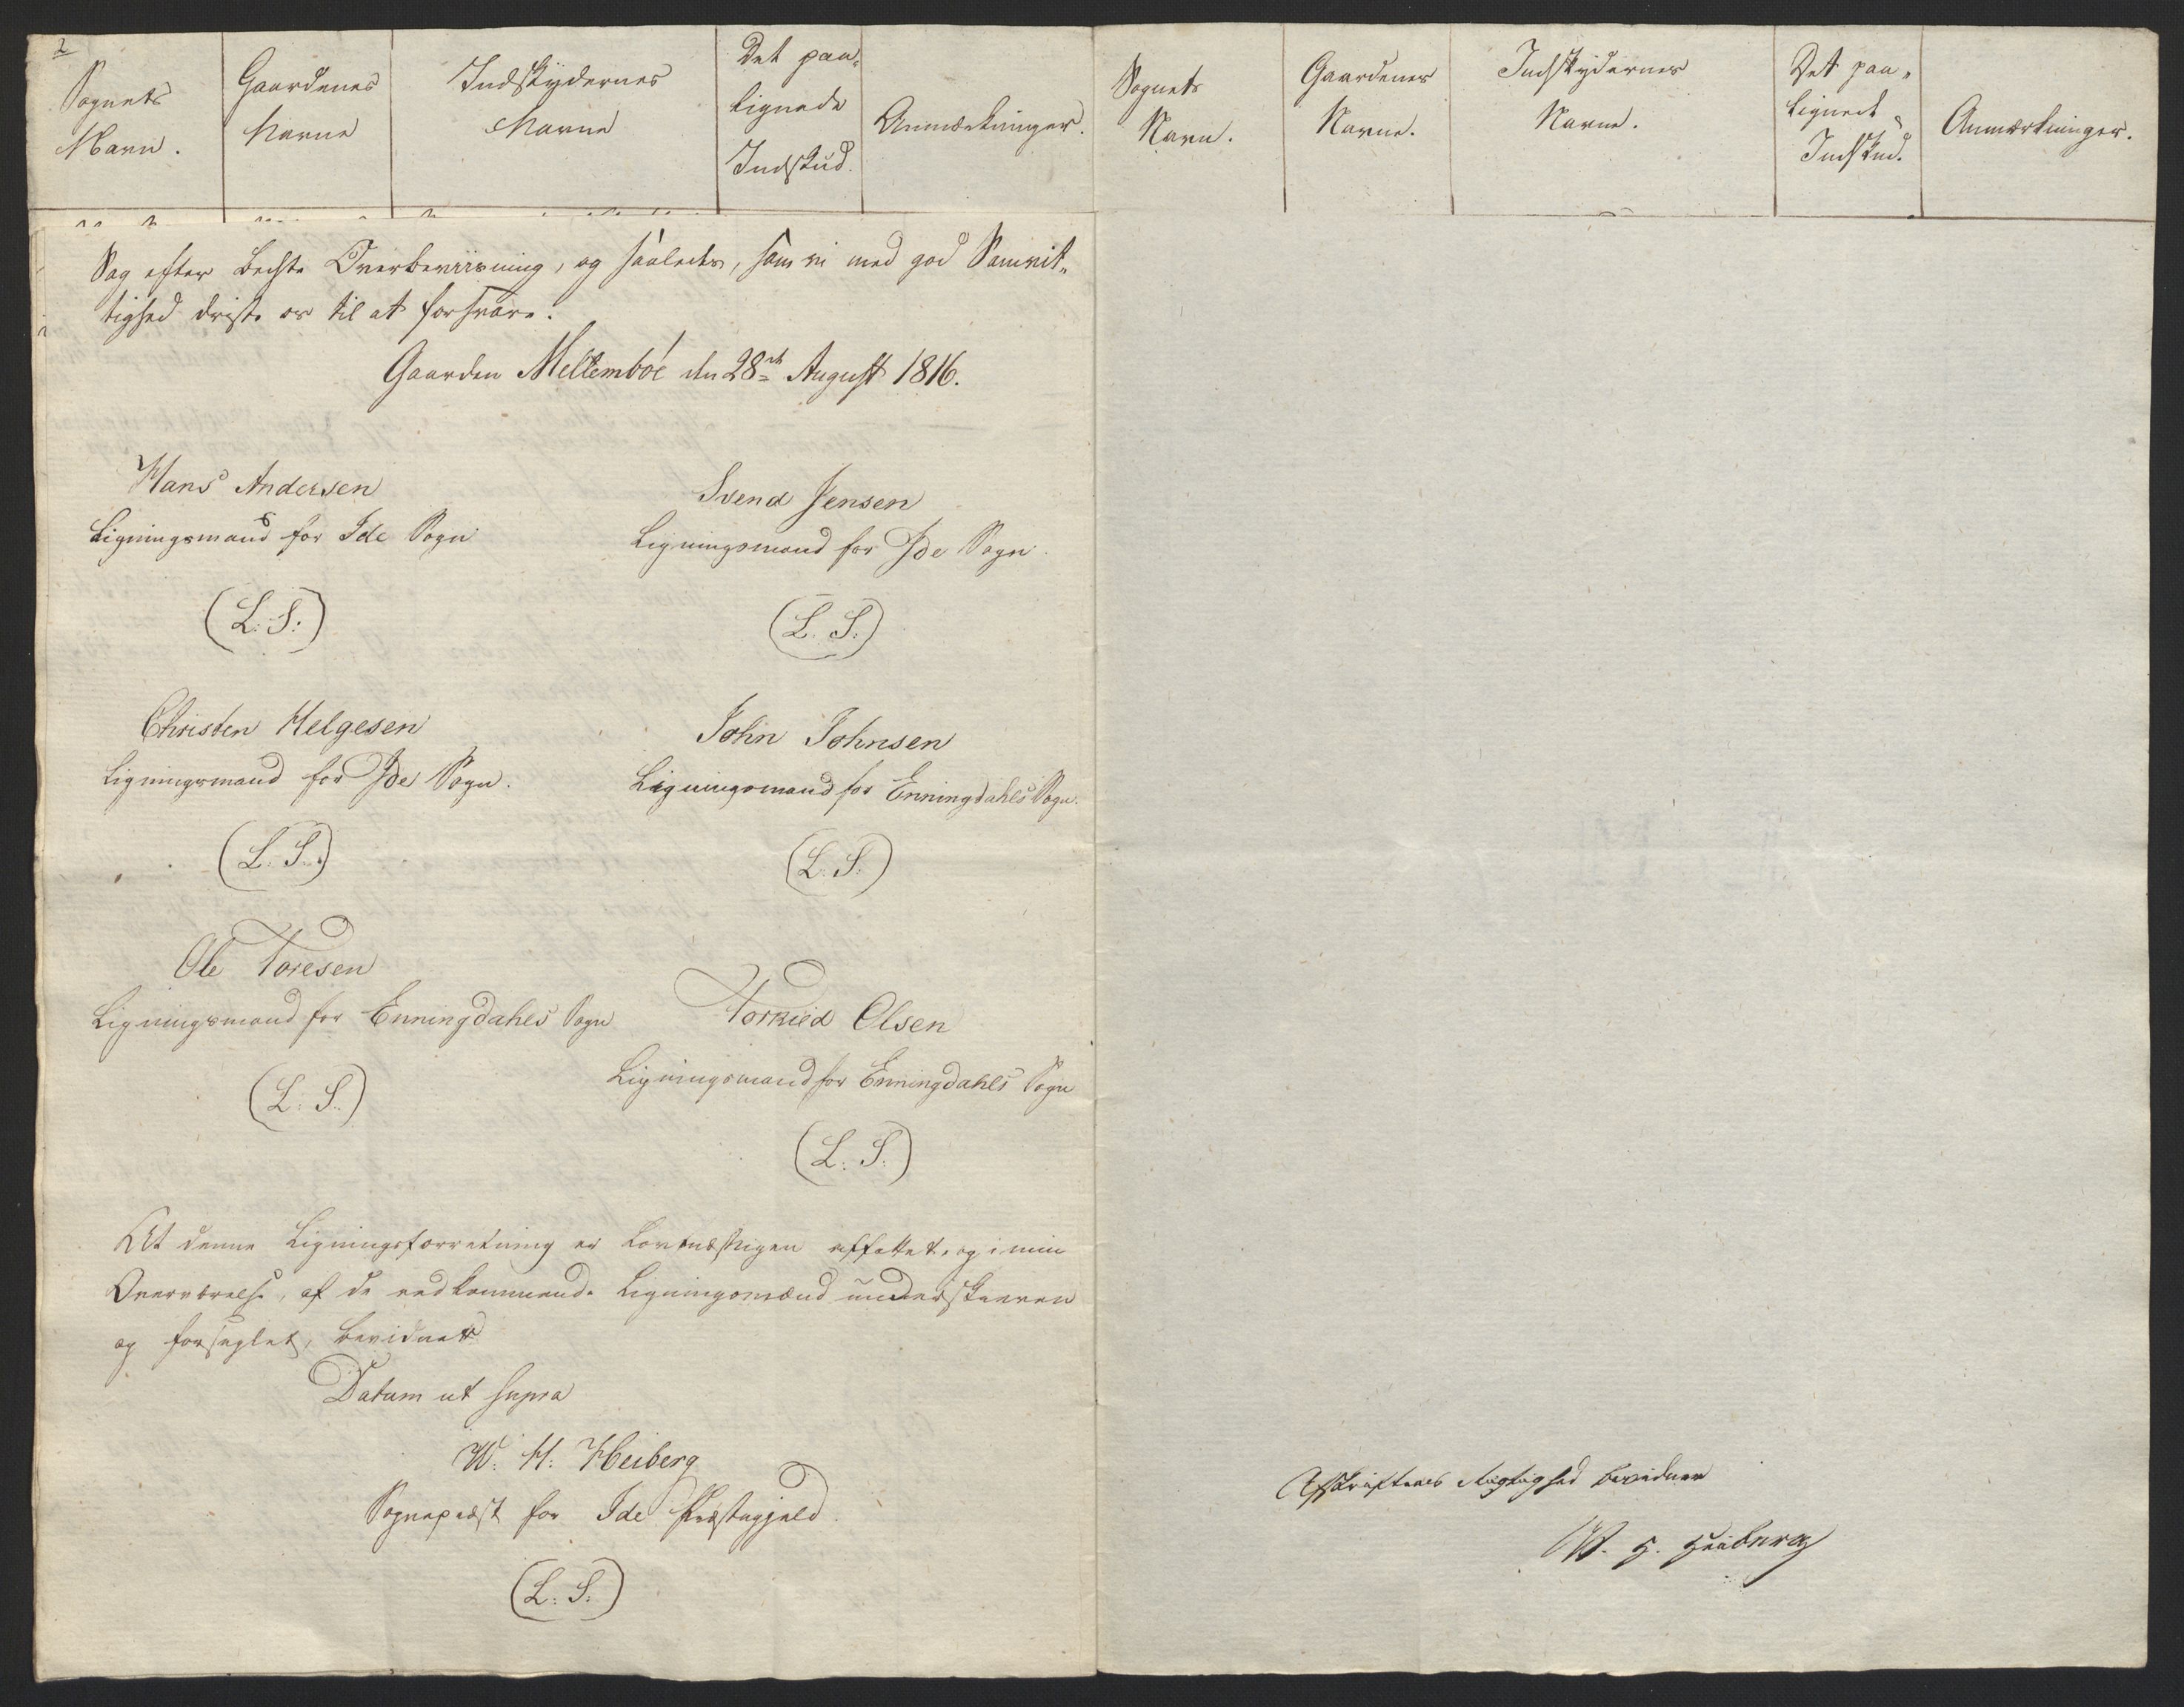 2
Sognets
Navn.
Gaardenes
Navne
Indskydernes
Navne
Det paa-
lignede
Indskud.
Anmærkninger.
Sag efter bedste Overbeviisning, og saaledes, som vi med god Samvit-
tighed driste os til at forsvare.
Gaarden Mellemböe den 28de August 1816.
Hans Andersen
Ligningsmand for Ide Sogn
(L. S.)
Svend Jensen
Ligningsmand for Ide Sogn.
(L. S.)
Christen Helgesen
Ligningsmand for Ide Sogn.
(L. S.)
John Johnsen
Ligningsmand for Enningdahls Sogn.
(L. S.)
Ole Toresen
Ligningsmand for Enningdahls Sogn
(L. S.)
Torkied Olsen
Ligningsmand for Enningdahls Sogn
(L. S.)
At denne Ligningsforretning er lovmæssigen affattet, og i min
Overværelse, af de vedkommende Ligningsmænd underskreven
og forseglet, bevidner
Datum ut supra
W. H. Heiberg
Sognepræst for Ide Præstegjeld.
(L. S.)
Sognets
Navn.
Gaardenes
Navne.
Indskydernes
Navne.
Det paa-
lignede
Indskud.
Anmærkninger.
Afskriftens Rigtighed bevidner
W. H. Heiberg